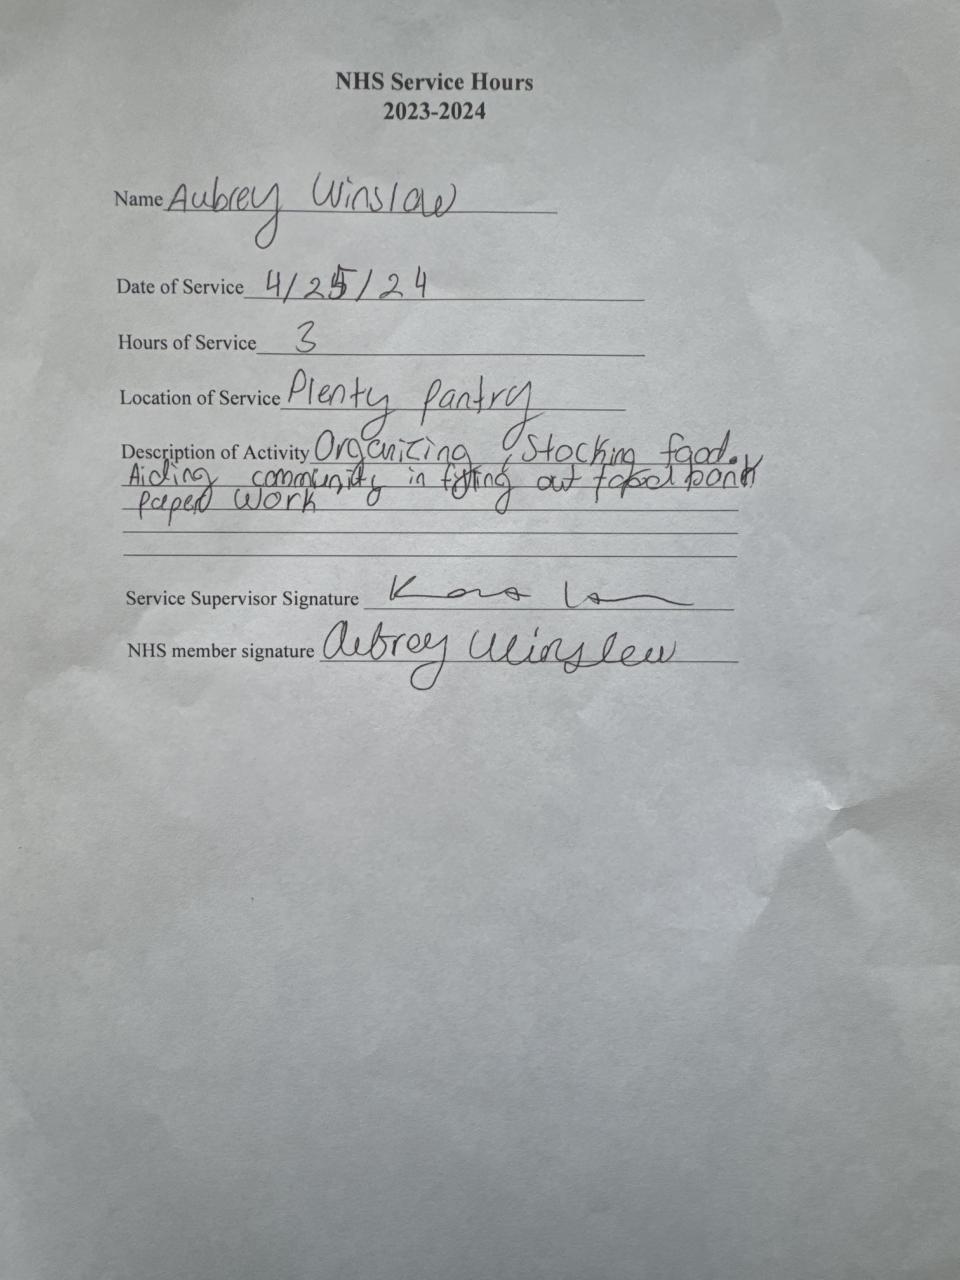 NHS Service Hours
2023-2024
Name Aubrey Winslow
Date of Service 4/25/24
Hours of Service 3
Location of Service Plenty Pantry
Description of Activity Organizing, Stocking food.
Aiding community in out food bank
paper work
Service Supervisor Signature
NHS member signature Aubrey Winslow